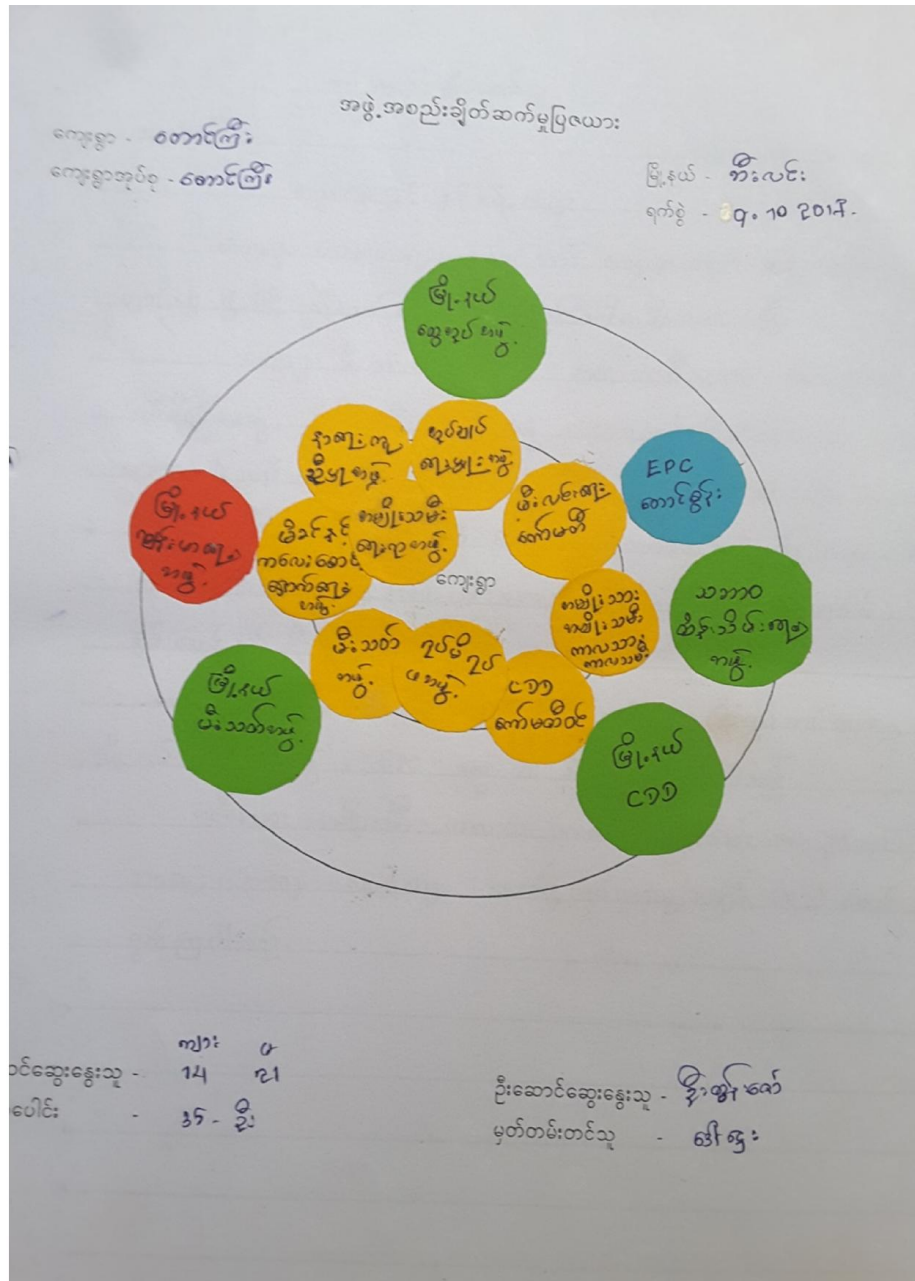 အဖွဲ့အစည်းချိတ်ဆက်မှုပြဇယား
ကျေးရွာ - တောင်ကြီး
ကျေးရွာအုပ်စု - တောင်ကြီး
မြို့နယ် - ဘီးလင်း
ရက်စွဲ - 9.10 2017.
မြို့နယ်
ထွေအုပ်အဖွဲ့
နာရေးကူ
ညီမှုအဖွဲ့
အုပ်ချုပ်
ရေးမှူးအဖွဲ့
မီးလင်းရေး
ကော်မတီ
EPC
တောင်စွန်း
မြို့နယ်
ကျန်းမာရေး
အဖွဲ့
မိခင်နှင့်
ကလေးစောင့်
ရှောက်ရေး
အဖွဲ့
အမျိုးသမီး
ရေးရာအဖွဲ့
ကျေးရွာ
အမျိုးသား
အမျိုးသမီး
ကာလသား
ကာလသမီး
သဘာဝ
ထိန်းသိမ်းရေး
အဖွဲ့
မီးသတ်
အဖွဲ့
ရပ်မိရပ်
ဖအဖွဲ့
CDD
ကော်မတီဝင်
မြို့နယ်
မီးသတ်အဖွဲ့
မြို့နယ်
CDD
ကျား မ
င်ဆွေးနွေးသူ - 14 21
ပေါင်း - 35 - ဦး
ဦးဆောင်ဆွေးနွေးသူ - ဦးထွန်းဇော်
မှတ်တမ်းတင်သူ - ဒေါ်ဌေး